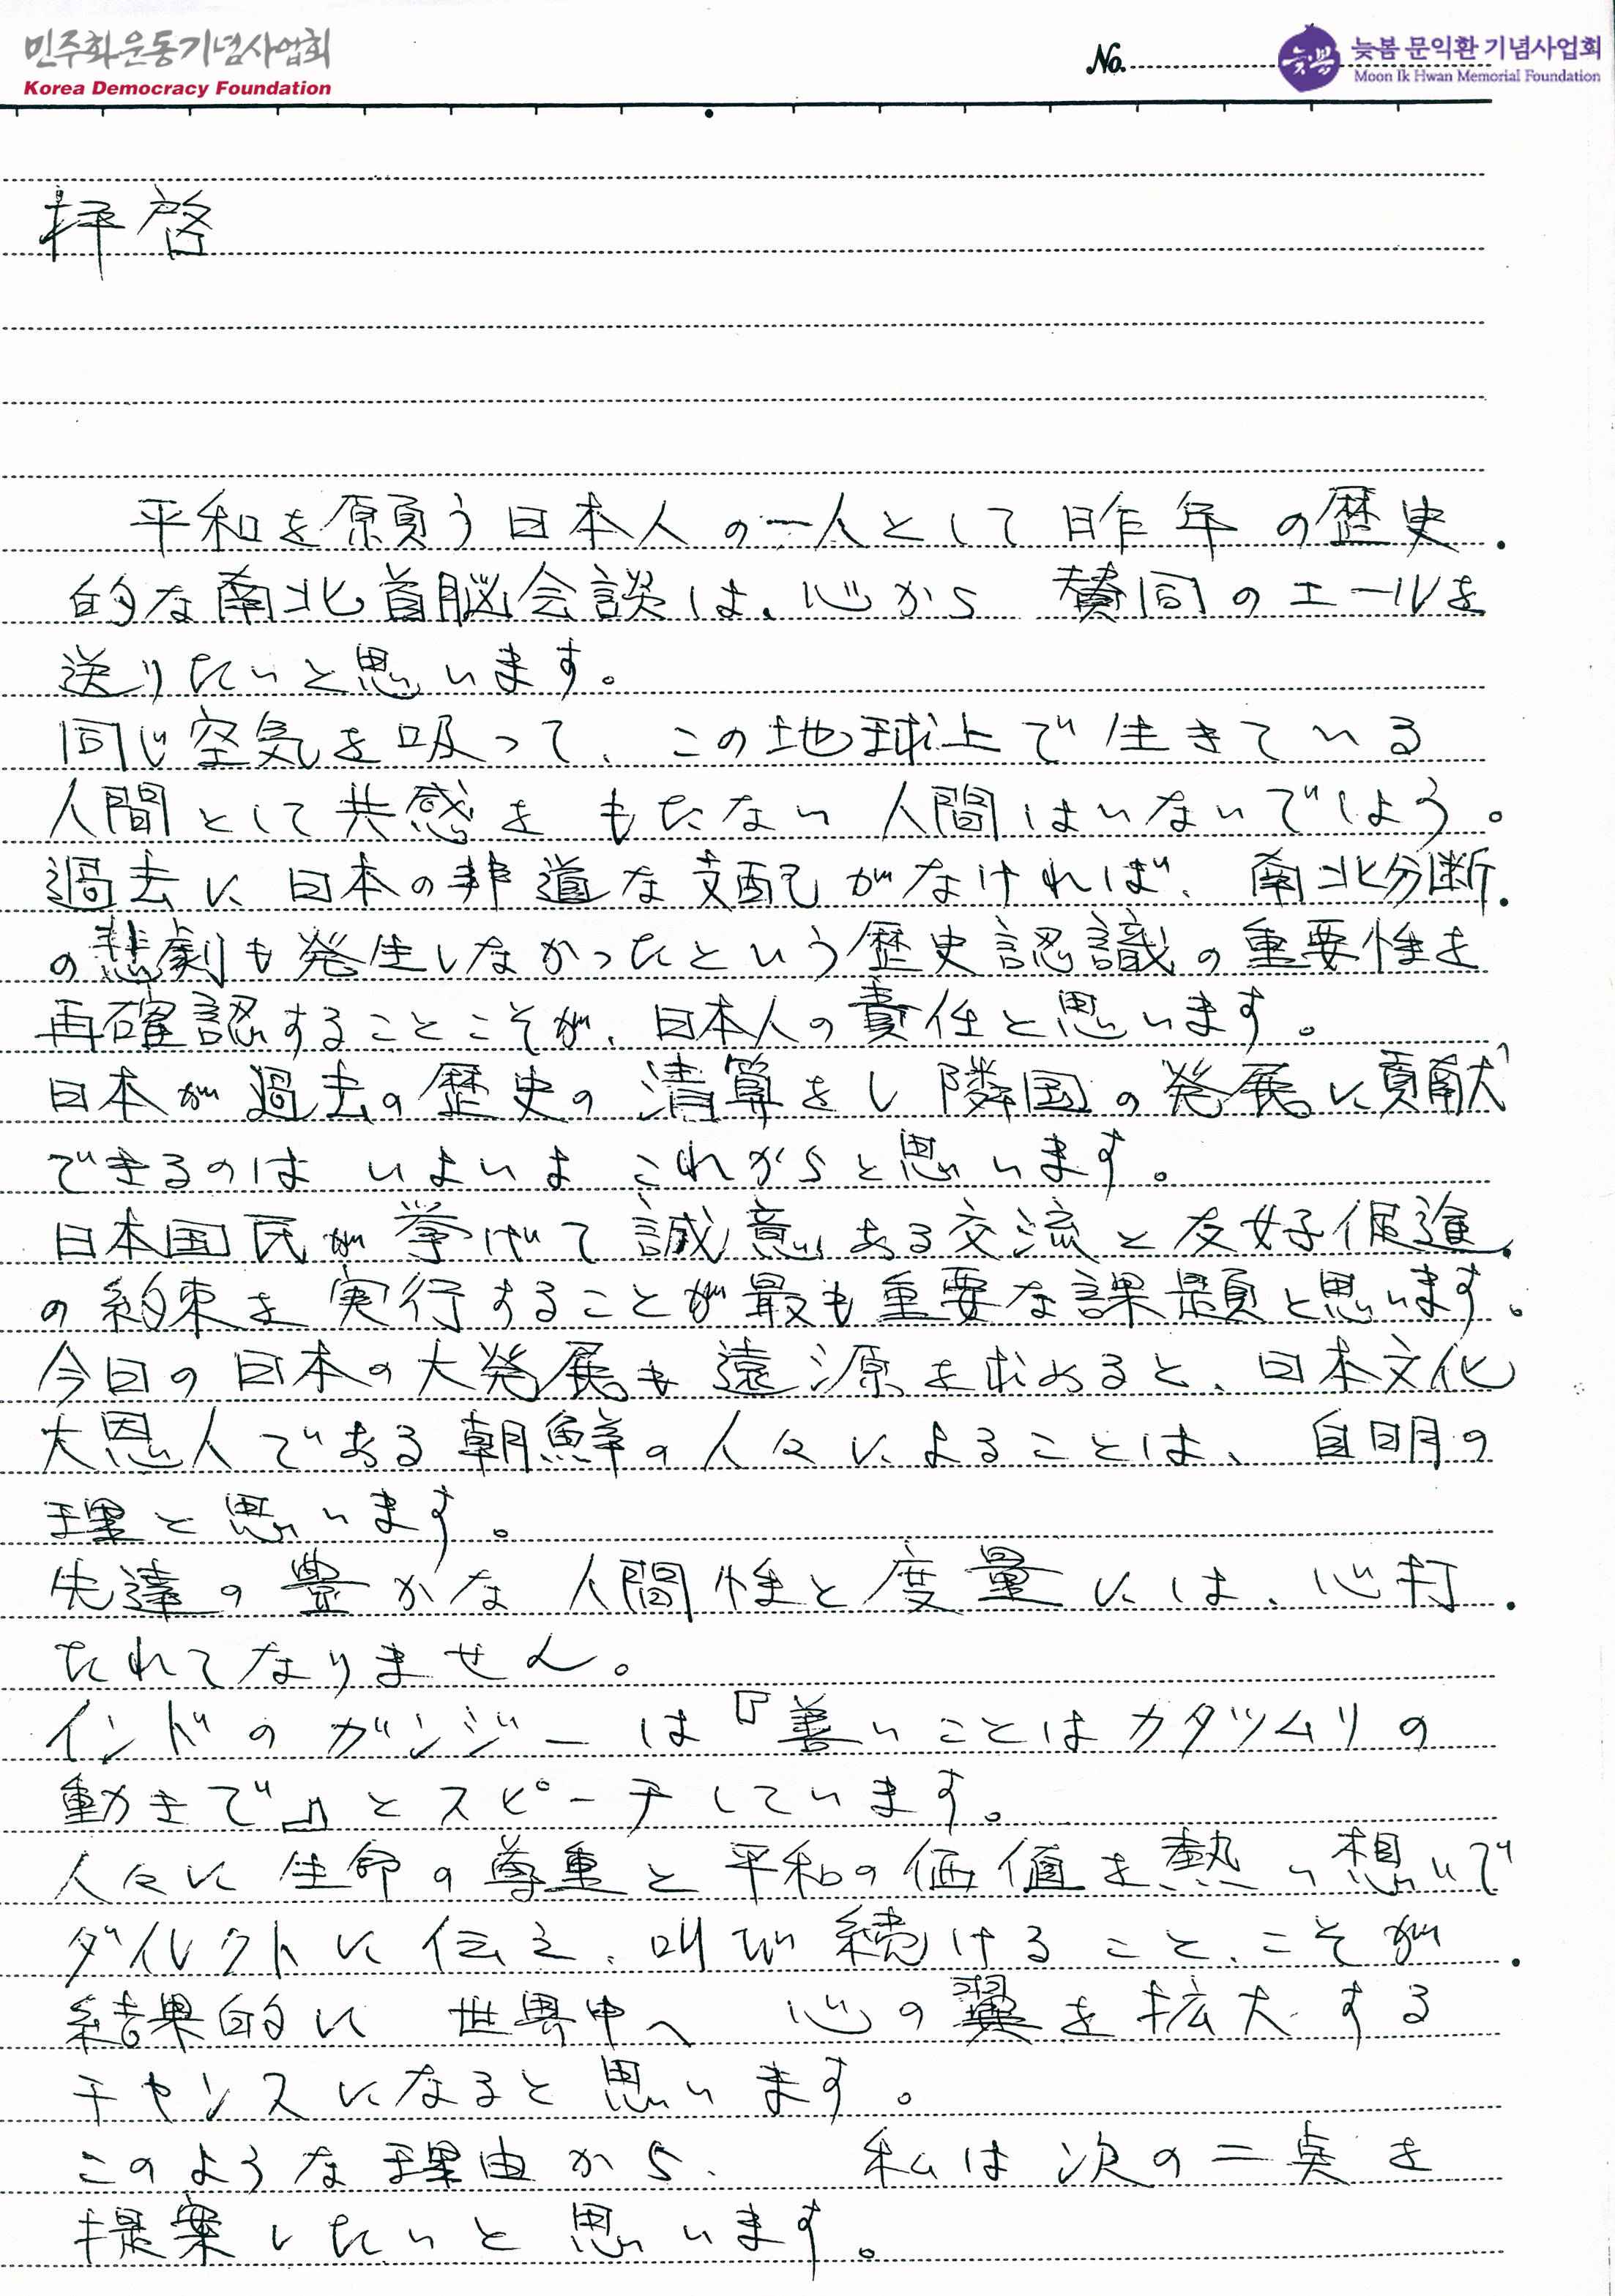 민주화운동기념사업회
Korea Democracy Foundation
No.
늦봄
늦봄 문익환 기념사업회
Moon Ik Hwan Memorial Foundation
拝啓
平和を願う日本人の一人として昨年の歴史
的な南北首脳会談は、心から 賛同のエールを
送りたいと思います。
同じ空気を吸って、この地球上で生きている
人間として共感をもたない人間はいないでしょう。
過去に日本の非道な支配がなければ、南北分断
の悲劇も発生しなかったという歴史認識の重要性を
再確認することこそが、日本人の責任と思います。
日本が過去の歴史の清算をし隣国の発展に貢献
できるのは いよいよ これからと思います。
日本国民が挙げて誠意ある交流と友好促進
の約束を実行することが最も重要な課題と思います。
今日の日本の大発展も遠源を求めると、日本文化
大恩人である朝鮮の人々によることは、自明の
理と思います。
先達の豊かな人間性と度量には、心打
たれてなりません。
インドのガンジーは『善いことはカタツムリの
動きで』とスピーチしています。
人々に生命の尊重と平和の価値を熱い想いで
ダイレクトに伝え、叫び続けること、こそが
結果的に 世界中へ 心の翼を拡大する
チャンスになると思います。
このような理由から、 私は次の二点を
提案したいと思います。